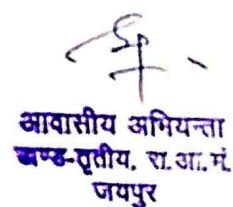 आवासीय अभियन्ता
खण्ड-तृतीय, रा.आ.मं.
जयपुर